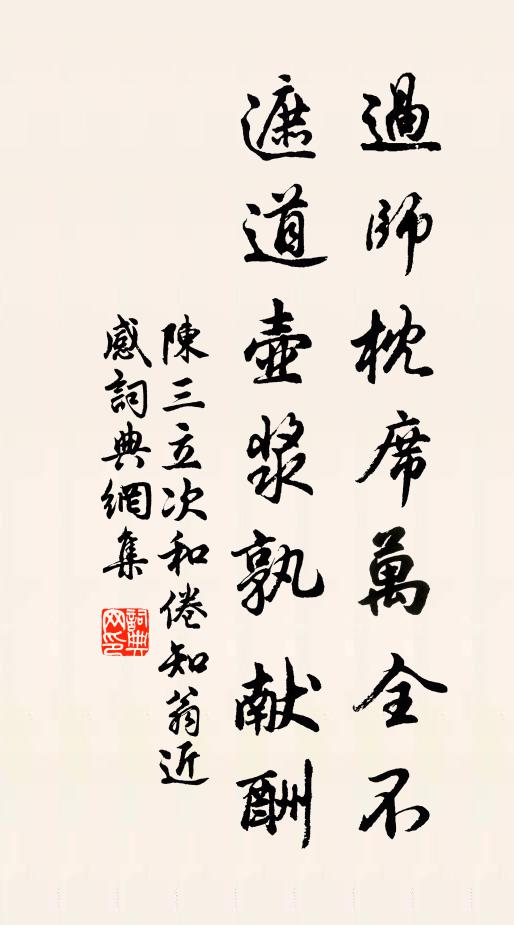 過師枕席萬全不
遮道壺漿孰献酬
陳三立次和倦知翁近
感詞典網集
詞典網印